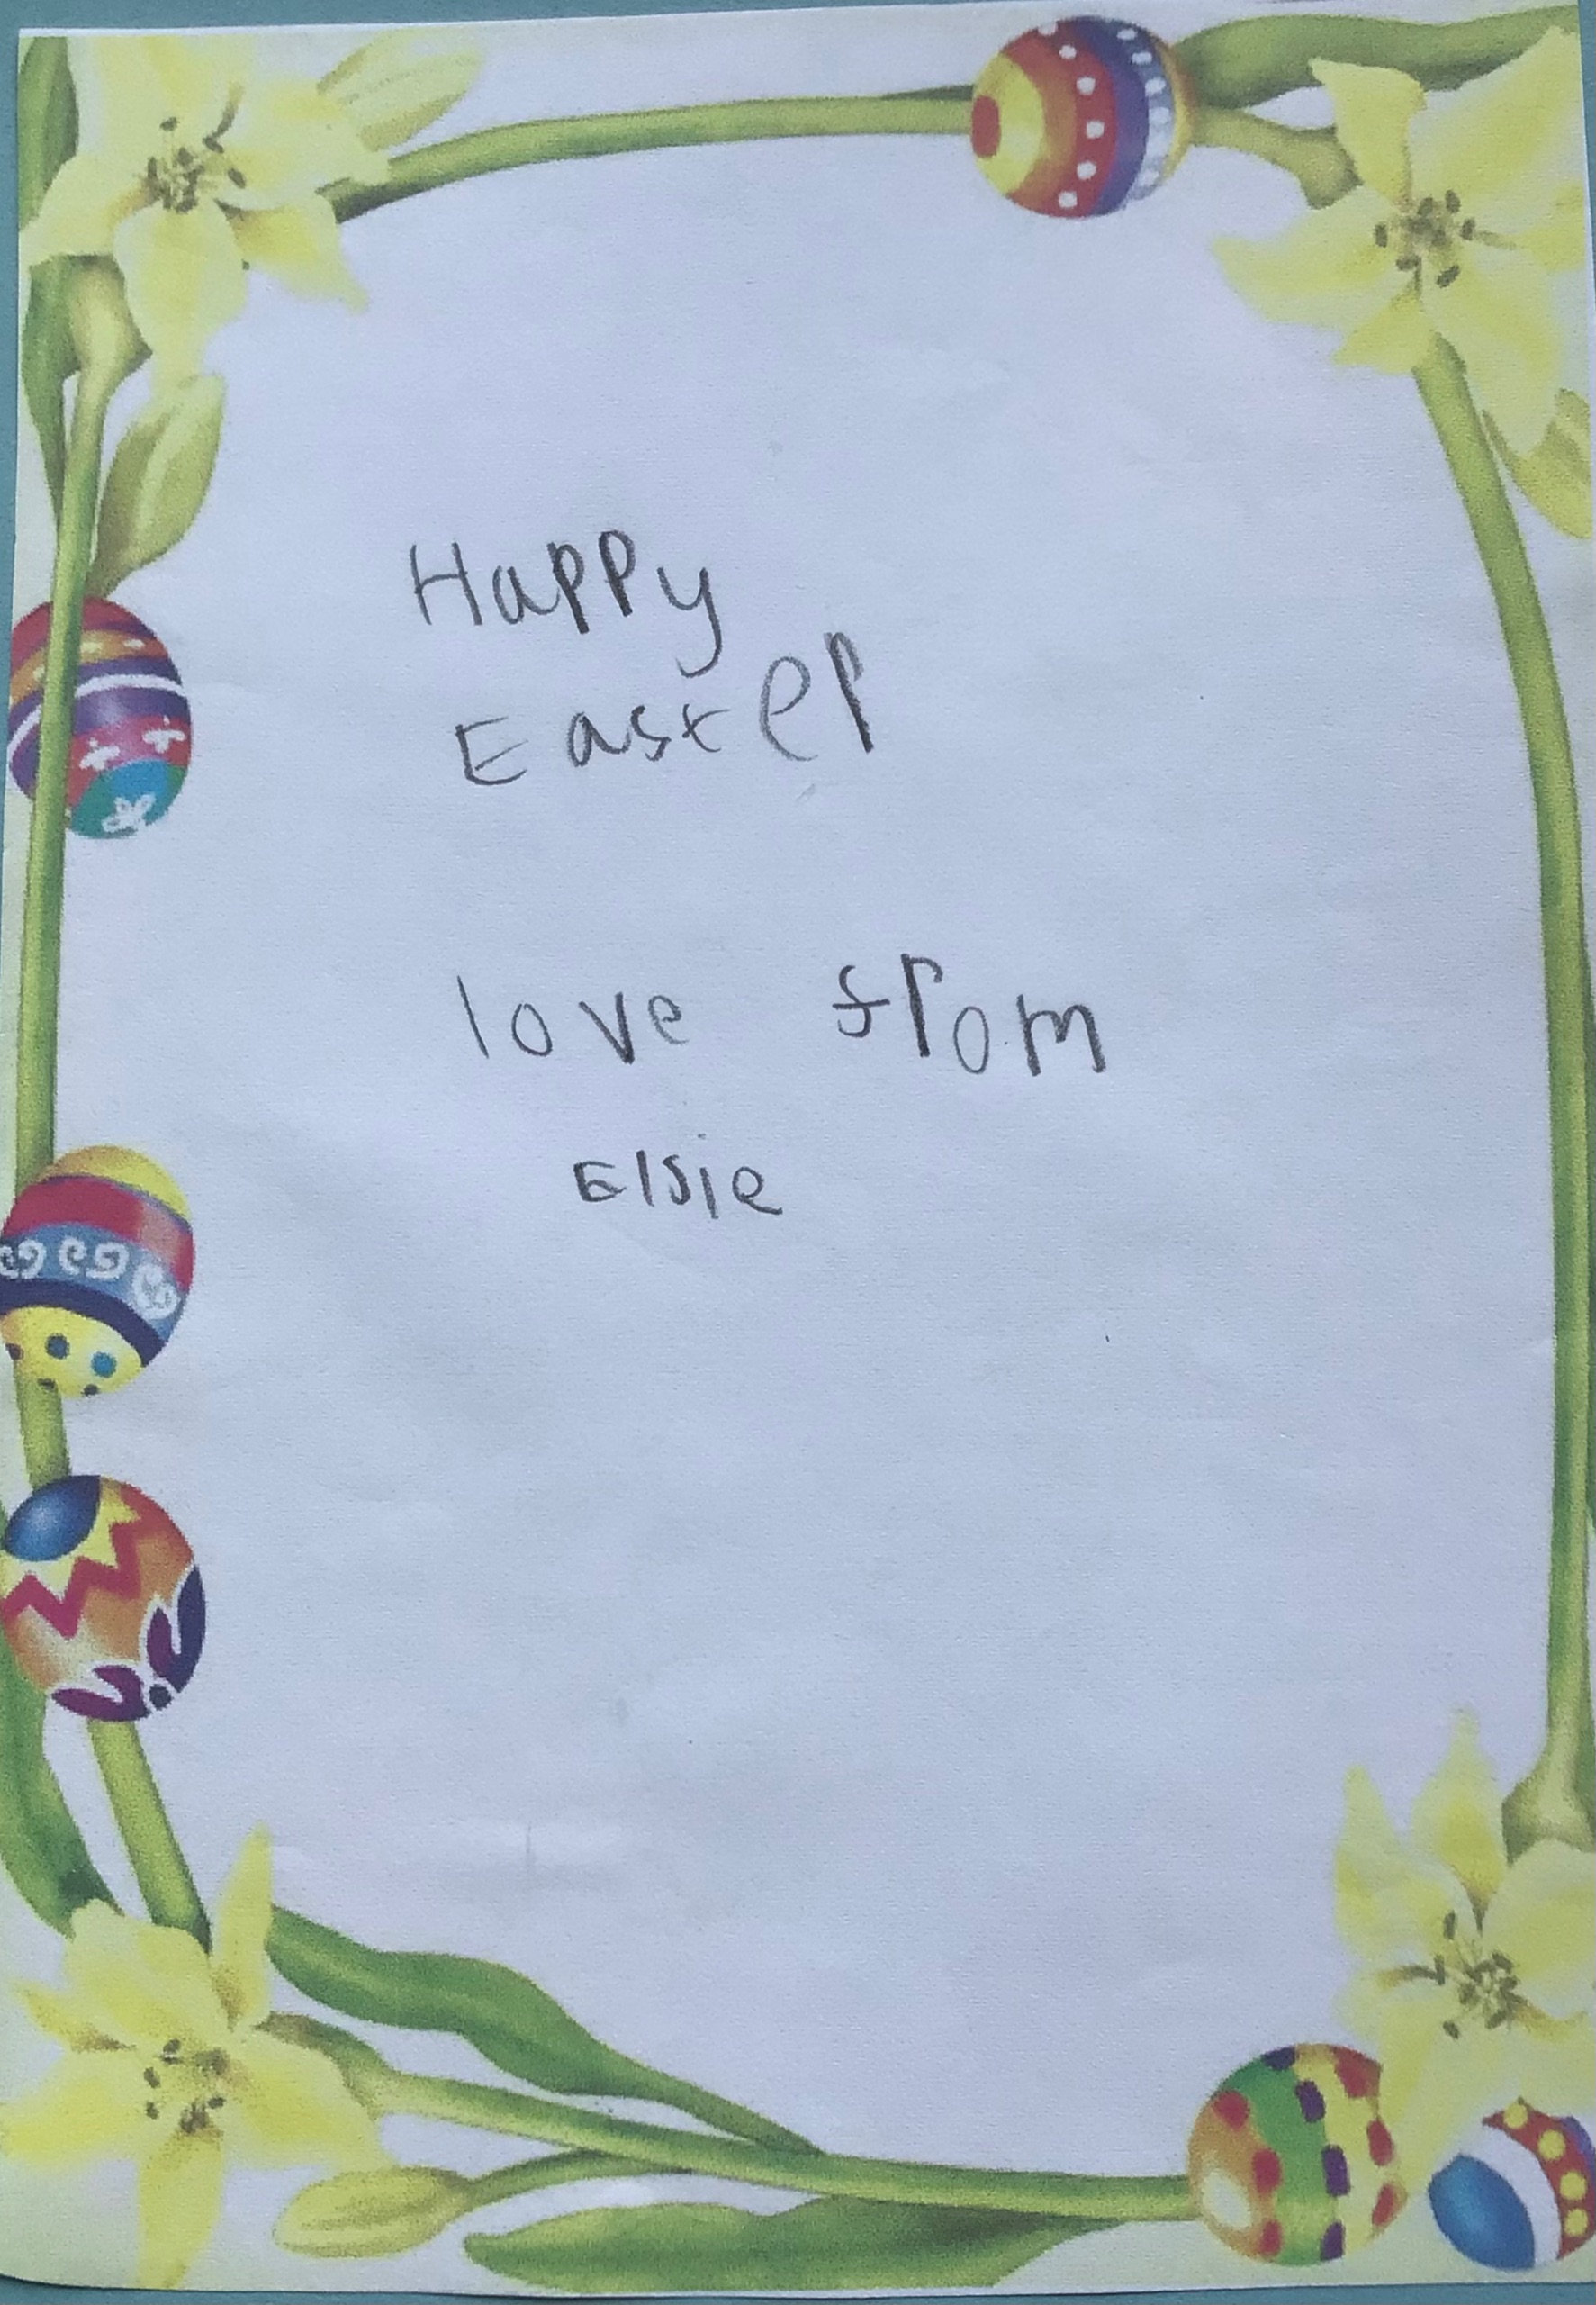 Happy
Easter
love from
Elsie